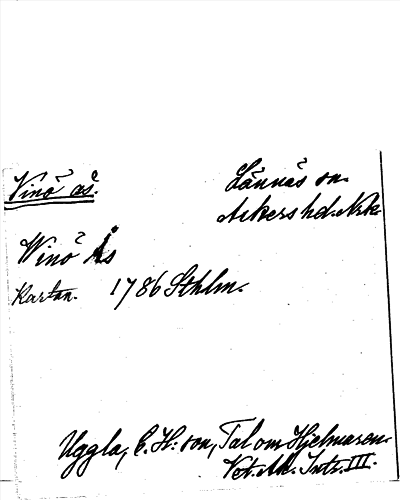 Vinö ås.
Lännäs sn.
Askers hd. Nrk.
Winö Ås
Kartan. 1786 Sthlm.
Uggla, C. H:son, Tal om Hjelmaren.
Vet. Ak. Intr. III.